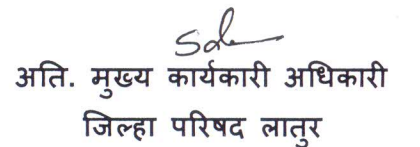 अति. मुख्य कार्यकारी अधिकारी
जिल्हा परिषद लातुर